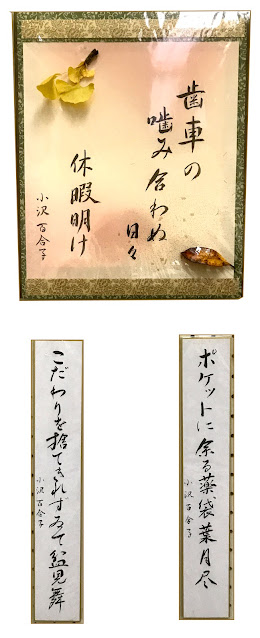 歯車の
噛み合わぬ
日々
休暇明け
小沢百合子
ポケットに余る薬袋葉月尽
小沢百合子
こだわりを捨てきれずゐて盆見舞
小沢百合子